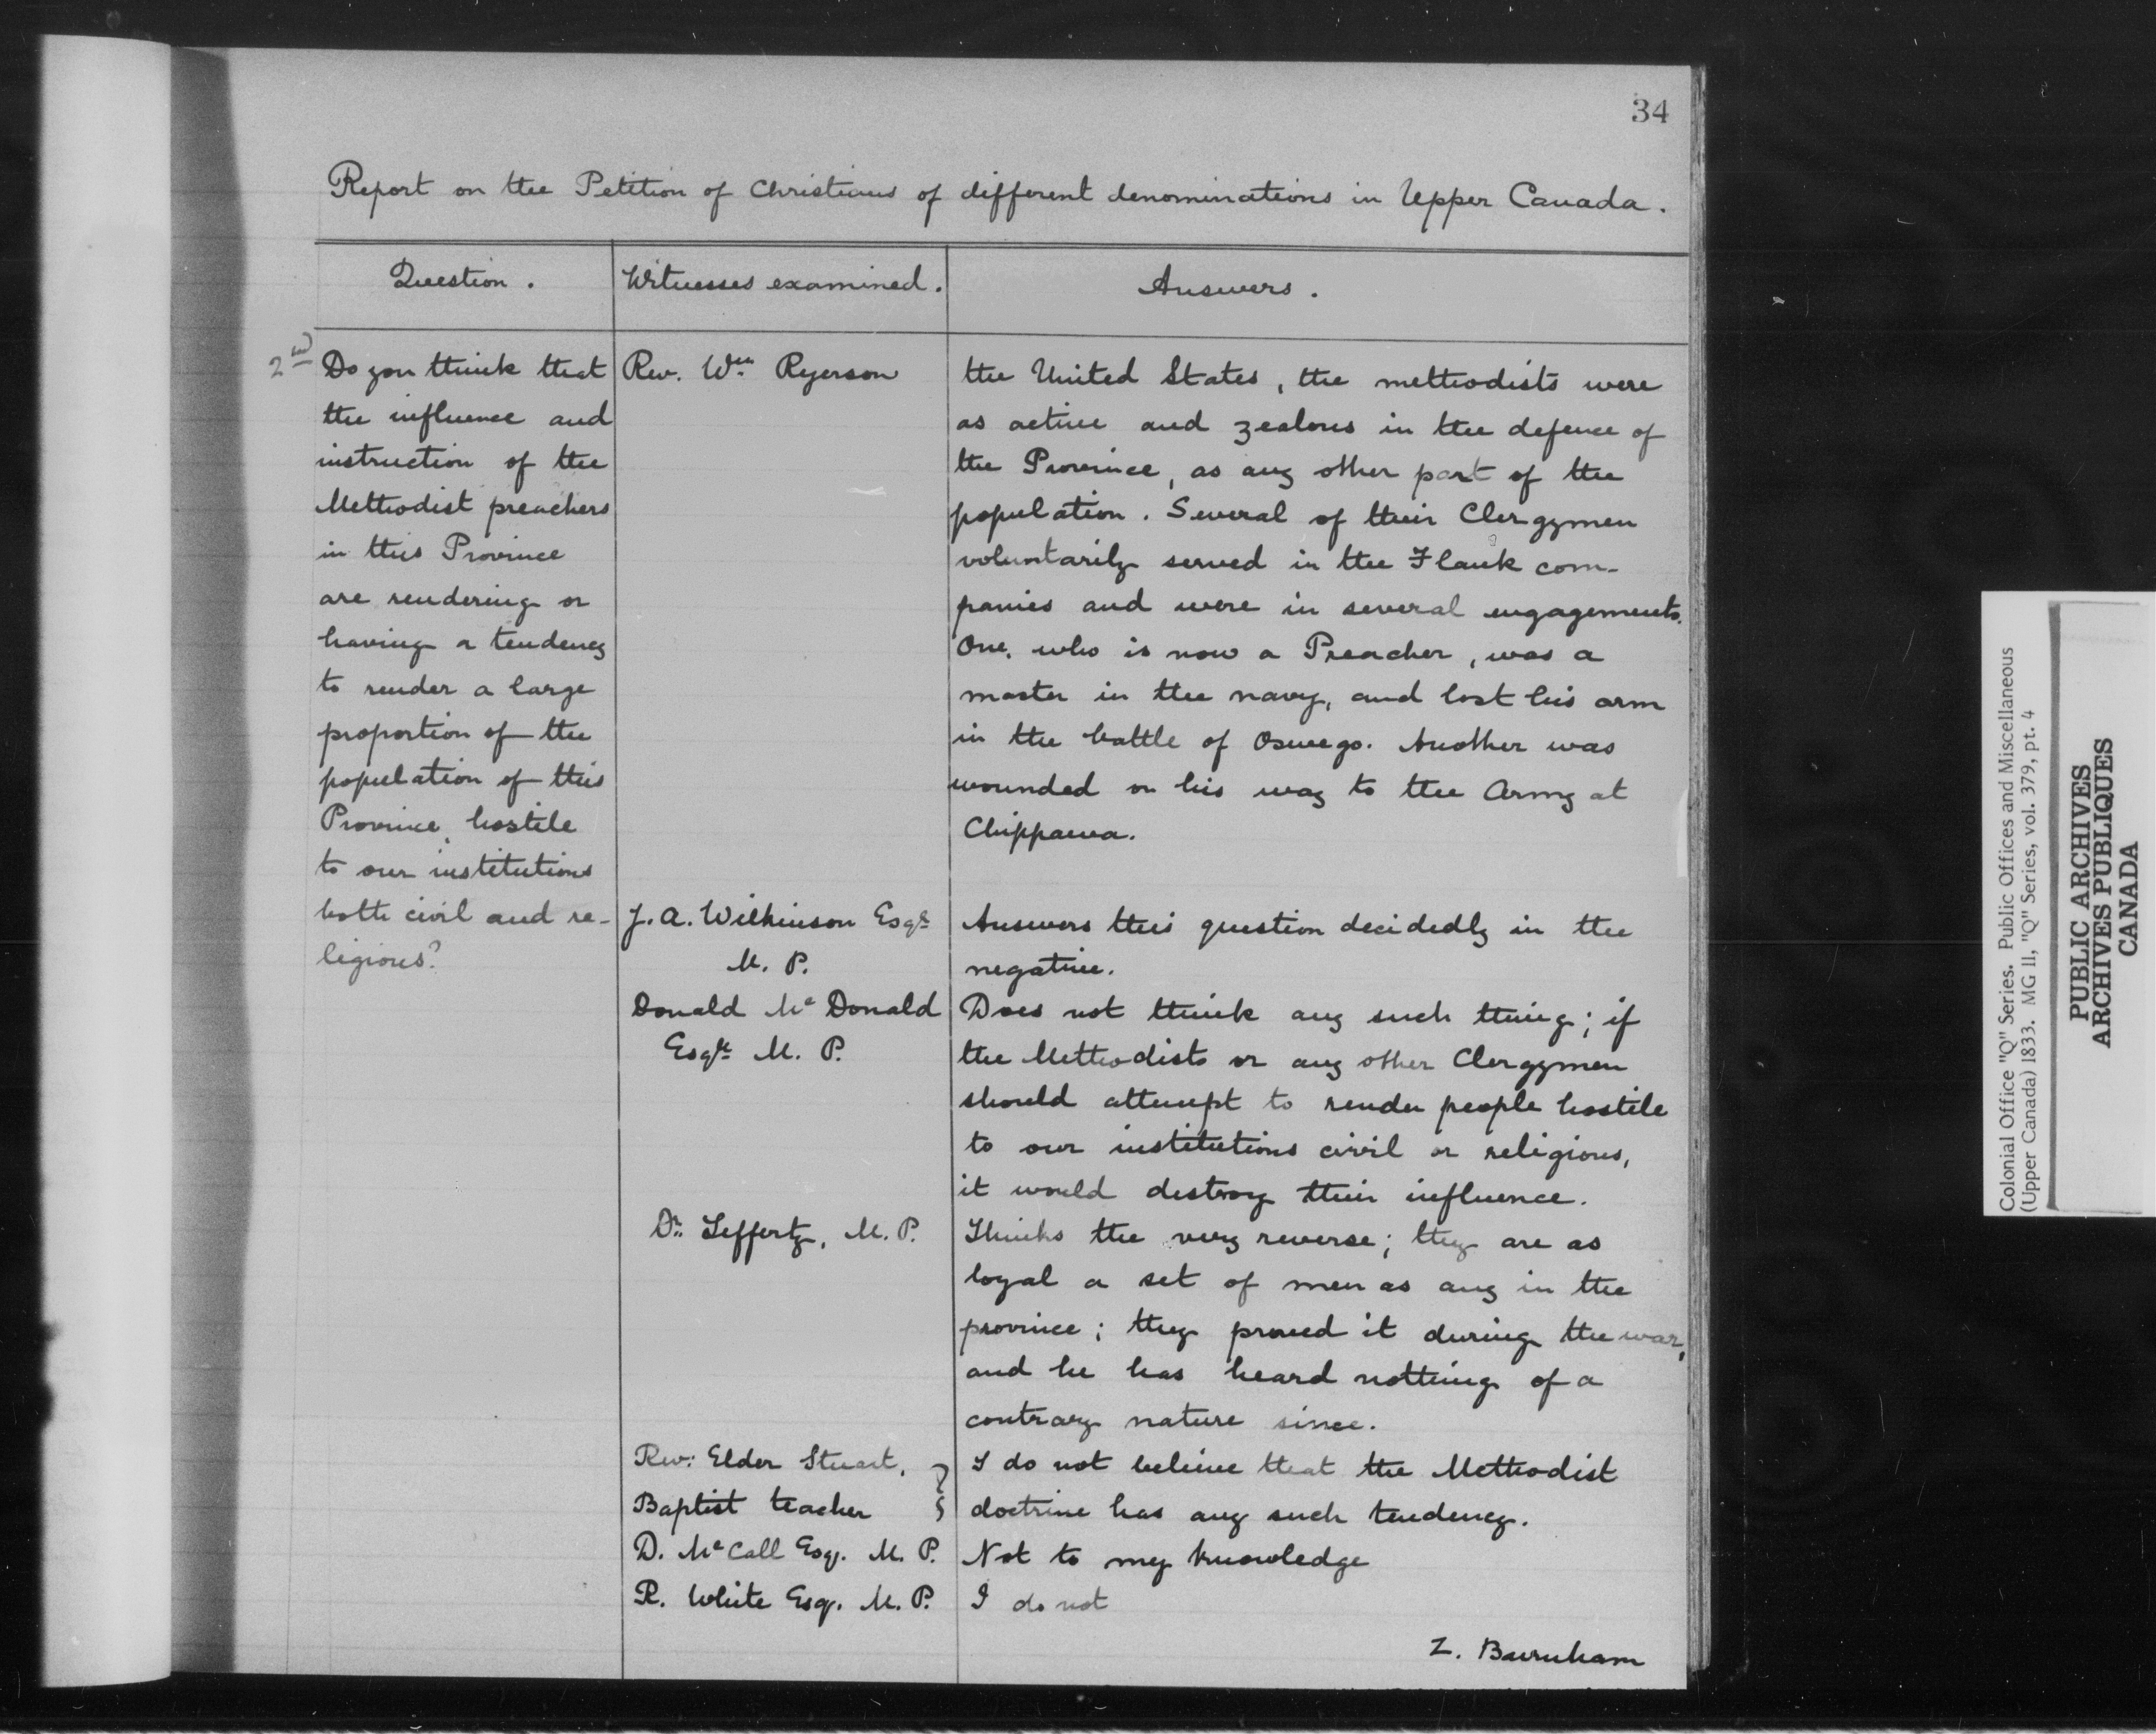 34
Report on the Petition of Christians of different denominations in Upper Canada.
Question.
Witnesses examined.
Answers.
2nd
Do you think that
the influence and
instruction of the
Methodist preachers
in this Province
are rendering or
having a tendency
to render a large
proportion of the
population of this
Province, hostile
to our institutions
both civil and re-
ligious?
Rev. Wm Ryerson
the United States, the methodists were
as active and zealous in the defence of
the Province, as any other part of the
population. Several of their Clergymen
voluntarily served in the Flank com-
panies and were in several engagements.
One, who is now a Preacher, was a
master in the navy, and lost his arm
in the battle of Oswego. Another was
wounded on his way to the Army at
Chippawa.
J. A. Wilkinson Esqr
M. P.
Answers this question decidedly in the
negative.
Donald Mc Donald
Esqre M. P.
Does not think any such thing; if
the Methodists or any other Clergymen
should attempt to render people hostile
to our institutions civil or religious,
it would destroy their influence.
Dr. Lefferty, M. P.
Thinks the very reverse; they are as
loyal a set of men as any in the
province; they proved it during the war,
and he has heard nothing of a
contrary nature since.
Rev: Elder Stuart,
Baptist teacher
I do not believe that the Methodist
doctrine has any such tendency.
D. Mc Call Esq. M. P.
Not to my knowledge
R. White Esq. M. P.
I do not
Z. Burnham
Colonial Office "Q" Series. Public Offices and Miscellaneous
(Upper Canada) 1833. MG 11, "Q" Series, vol. 379, pt. 4
PUBLIC ARCHIVES
ARCHIVES PUBLIQUES
CANADA